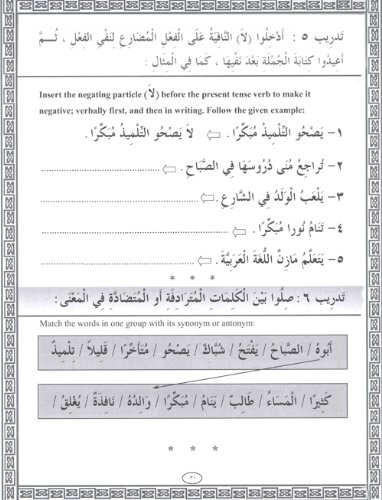 تدريب ٥ : أَدْخِلُوا (لاَ) النَّافِيَةَ عَلَى الْفِعْلِ الْمُضَارِعِ لِنَفْيِ الْفِعْلِ ، ثُمَّ
أَعِيدُوا كِتَابَةَ الْجُمْلَةِ بَعْدَ نَفْيِهَا ، كَمَا فِي الْمِثَالِ :
Insert the negating particle (لاَ) before the present tense verb to make it
negative; verbally first, and then in writing. Follow the given example:
١- يَصْحُو التِّلْمِيذُ مُبَكِّرًا. ⇦ لاَ يَصْحُو التِّلْمِيذُ مُبَكِّرًا.
٢- تُرَاجِعُ مُنَى دُرُوسَهَا فِي الصَّبَاحِ. ⇦
٣- يَلْعَبُ الْوَلَدُ فِي الشَّارِعِ. ⇦
٤- تَنَامُ نُورا مُبَكِّرًا. ⇦
٥- يَتَعَلَّمُ مَازِنٌ اللُّغَةَ الْعَرَبِيَّةَ. ⇦
* * *
تَدريب ٦ : صِلُوا بَيْنَ الْكَلِمَاتِ الْمُتَرَادِفَةِ أَوِ الْمُتَضَادَّةِ فِي الْمَعْنَى :
Match the words in one group with its synonym or antonym:
أَبُوهُ / الصَّبَاحُ / يَفْتَحُ / شُبَّاكٌ / يَصْحُو / مُتَأَخِّرًا / قَلِيلاً / تِلْمِيذٌ
كَثِيرًا / الْمَسَاءُ / طَالِبٌ / يَنَامُ / مُبَكِّرًا / وَالِدُهُ / نَافِذَةٌ / يُغْلِقُ /
* * *
٣١